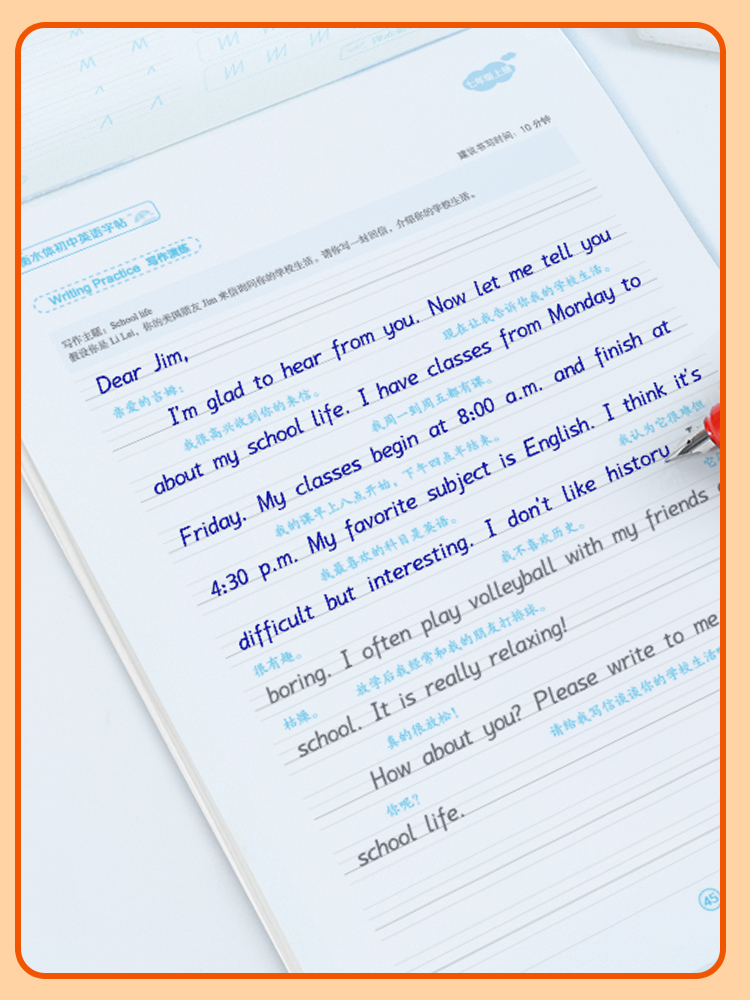 七年级上册
建议书写时间：10 分钟
衡水体初中英语字帖
Writing Practice 写作演练
写作主题：School life
假设你是 Li Lei，你的美国朋友 Jim 来信询问你的学校生活。请你写一封回信，介绍你的学校生活。
Dear Jim,
亲爱的吉姆：
I'm glad to hear from you. Now let me tell you
我很高兴收到你的来信。 现在让我告诉你我的学校生活。
about my school life. I have classes from Monday to
我周一到周五都有课。
Friday. My classes begin at 8:00 a.m. and finish at
我的课早上八点开始，下午四点半结束。
4:30 p.m. My favorite subject is English. I think it's
我最喜欢的科目是英语。 我认为它很难但
difficult but interesting. I don't like history
很有趣。 我不喜欢历史。 它
boring. I often play volleyball with my friends
枯燥。 放学后我经常和我的朋友打排球。
school. It is really relaxing!
真的很放松！
How about you? Please write to me
你呢？ 请给我写信谈谈你的学校生活
school life.
45